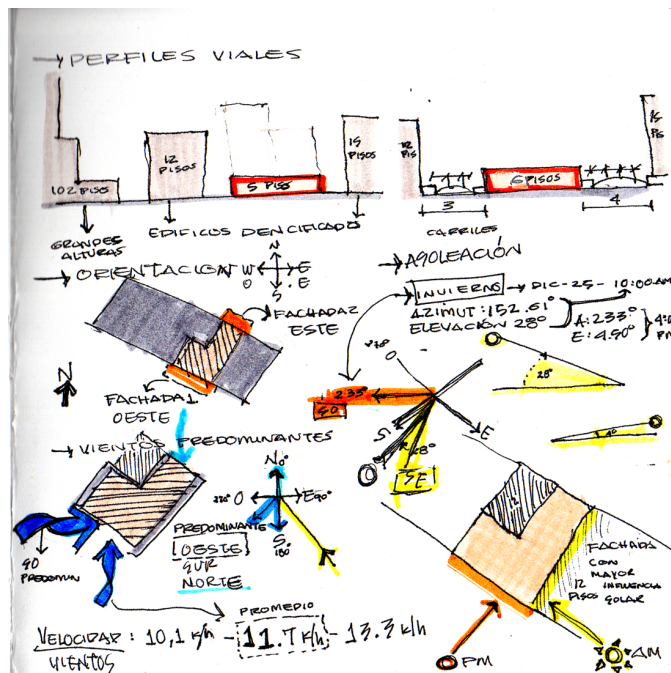 → PERFILES VIALES
102 PISOS
12 PISOS
5 PISO
15 PISOS
12 PIS
6 PISOS
15 PIS
GRANDES ALTURAS
EDIFICOS DENCIFICADOS
3
CARRILES
4
→ ORIENTACION
N
W
O
E
S
.E
FACHADA 2
ESTE
N
FACHADA 1
OESTE
→ ASOLEACIÓN
→ INVIERNO → DIC-25-10:00AM
AZIMUT: 152.61°
ELEVACIÓN 28°
A: 233°
E: 4.50°
PM
270° O
233°
SO
S
28°
SE
E
28°
4°
→ VIENTOS PREDOMINANTES
N 0°
270° O
E 90°
S 180°
PREDOMINANTE
OESTE
SUR
NORTE
SO
PREDOMIN
PROMEDIO
VELOCIDAD: 10,1 k/h - 11.7 k/h - 13.3 k/h
VIENTOS
FACHADA
CON
MAYOR
INFLUENCIA
SOLAR
12
PISOS
PM
AM